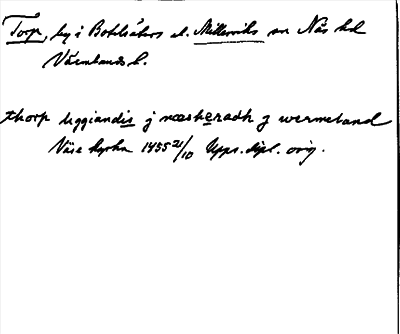 Torp, by i Botilsäters el. Millesviks sn Näs hd
Värmlands l.
thorp liggiandis j næsheradh j wermeland
Väse kyrka 1455 21/10 Upps. dipl. orig.